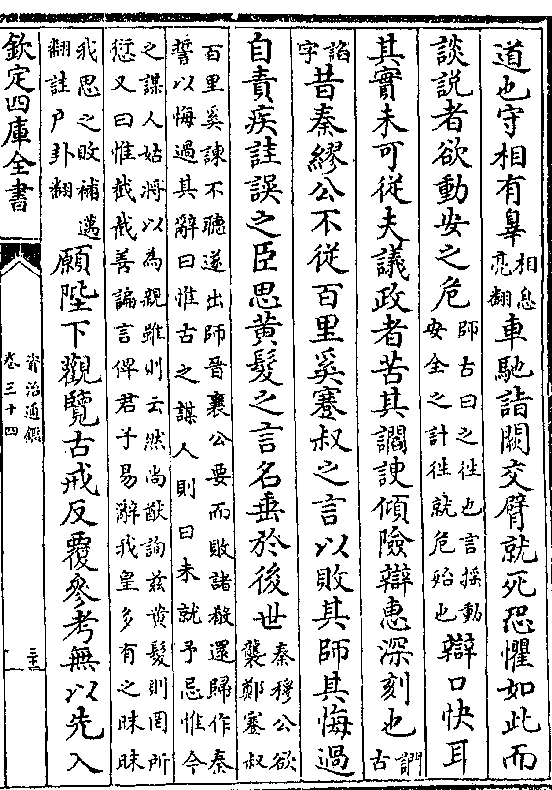 道也守相有辠相息亮翻車馳詣闕交臂就死恐懼如此而
談說者欲動安之危師古曰之往也言揺動安全之計往就危殆也辯口快耳
其實未可從夫議政者苦其讇諛傾險辯惠深刻也讇古
諂字昔秦繆公不從百里奚蹇叔之言以敗其師其悔過
自責疾詿誤之臣思黄髮之言名垂於後世秦穆公欲襲鄭蹇叔
百里奚諫不聽遂出師晉襄公要而敗諸殽還歸作秦
誓以悔過其辭曰惟古之謀人則曰未就予忌惟今
之謀人姑將以為親雖則云然尚猷詢兹黄髮則罔所
愆又曰惟截截善諞言俾君子易辭我皇多有之昧昧
我思之敗補邁翻詿戶卦翻願陛下觀覽古戒反覆參考無以先入
欽定四庫全書
資治通鑑
卷三十四